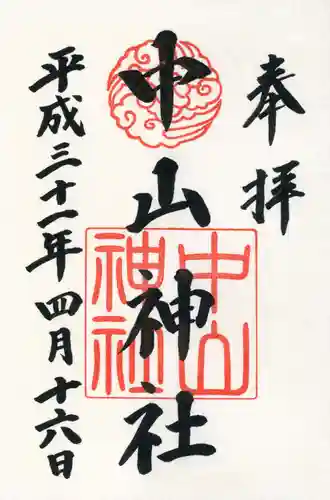 奉拝
中山神社
中山神社
平成三十一年四月十六日